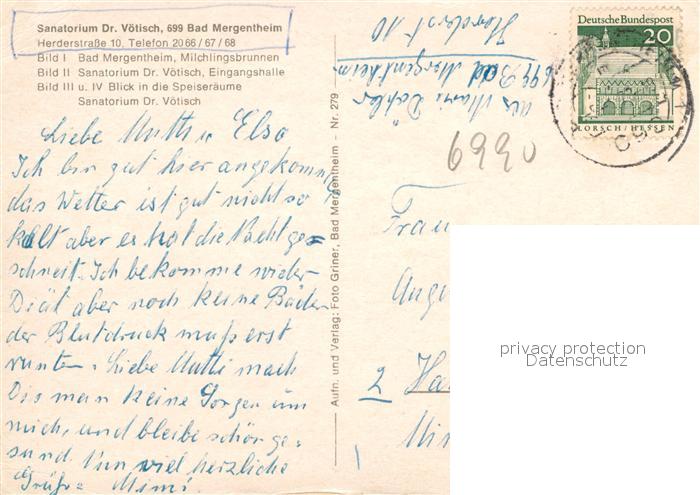 Sanatorium Dr. Vötisch, 699 Bad Mergentheim
Herderstraße 10, Telefon 2066/67/68
Bild I Bad Mergentheim, Milchlingsbrunnen
Bild II Sanatorium Dr. Vötisch, Eingangshalle
Bild III u. IV Blick in die Speiseräume
Sanatorium Dr. Vötisch
Liebe Mutti u Elsa
Ich bin gut hier angekommen
das Wetter ist gut nicht so
kalt aber es hat die Nacht ge=
schneit. Ich bekomme wieder
Diät aber noch keine Bäder
der Blutdruck muß erst
runter. Liebe Mutti mach
Dir man keine Sorgen um
mich, und bleibe schön ge-
sund. Nun viel herzliche
Grüße Mimi
Aufn. und Verlag: Foto Griner, Bad Mergentheim - Nr. 279
Abs. Mimi
699 Bad Mergentheim
10
6990
Deutsche Bundespost
20
LORSCH/HESSEN
Frau
2 Ha
privacy protection
Datenschutz